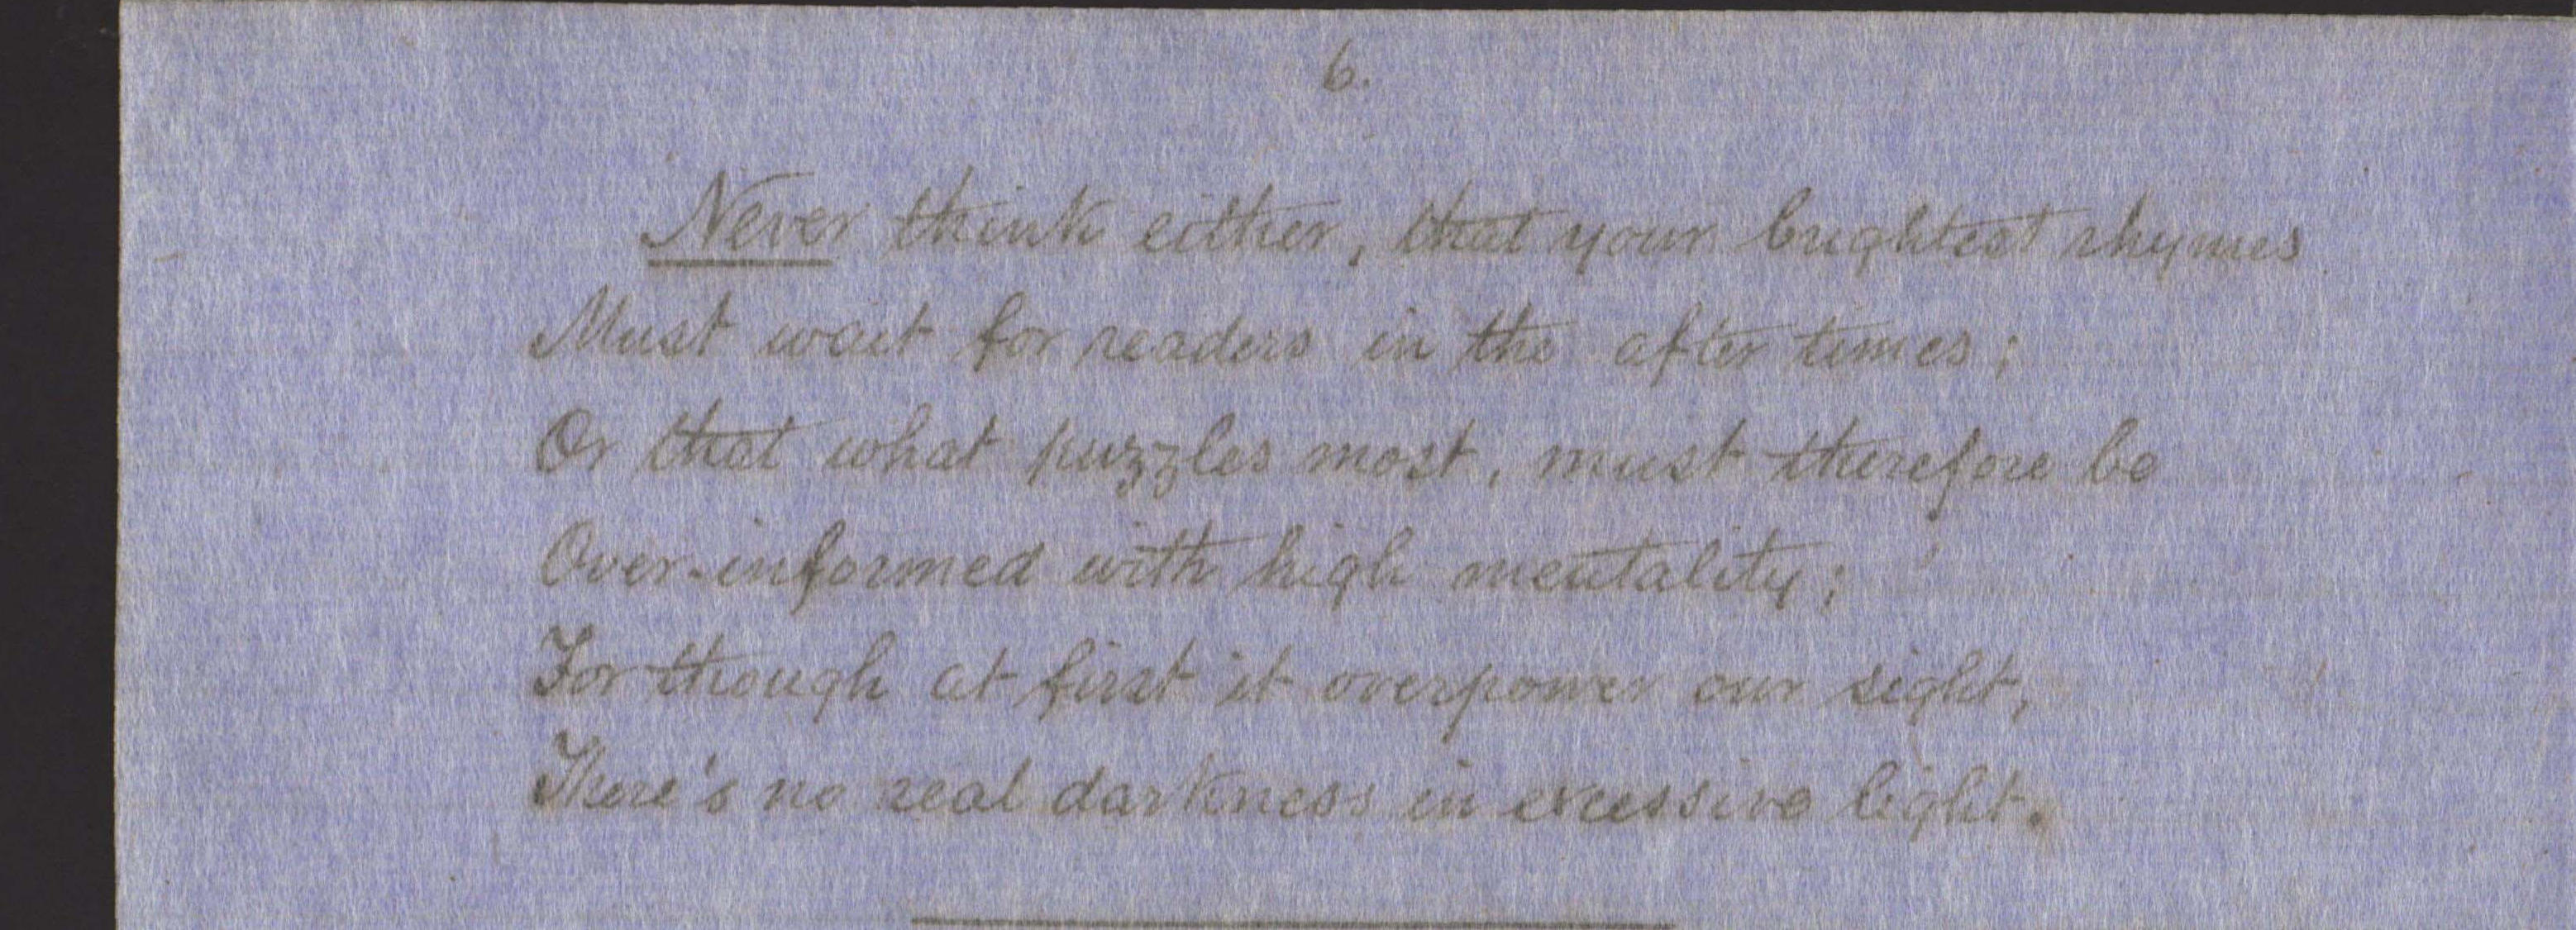 6.
Never think either, that your brightest rhymes
Must wait for readers in the after times;
Or that what puzzles most, must therefore be
Over-informed with high mentality;
For though at first it overpower our sight,
There's no real darkness in excessive light.